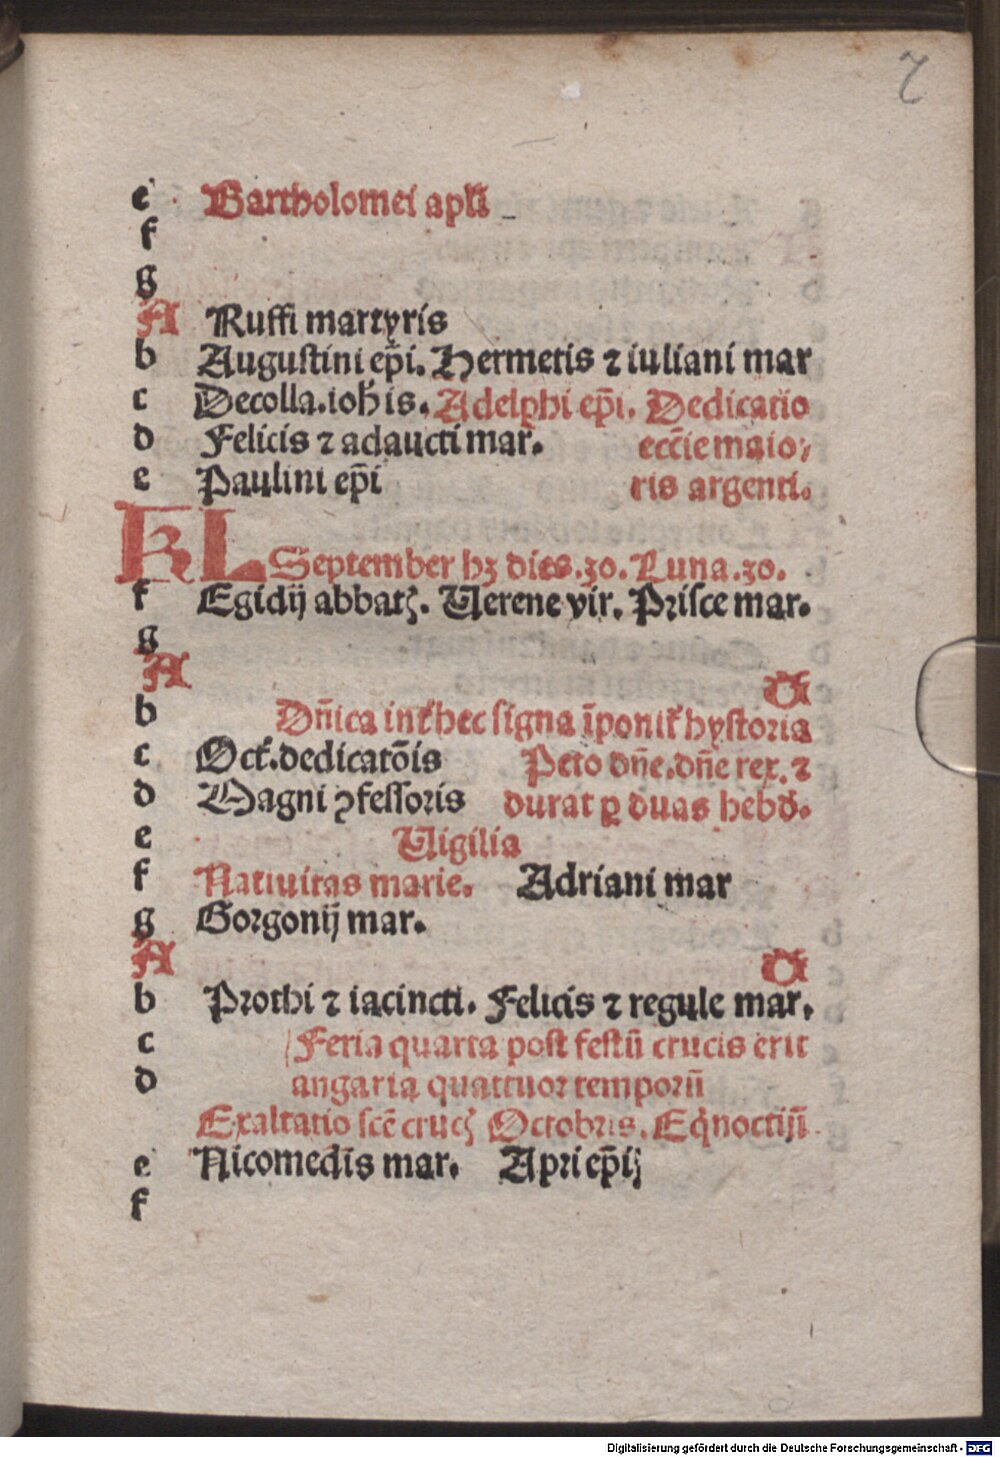 7
e Bartholomei apľi
f
g
A Ruffi martyris
b Augustini ep̄i. Hermetis ⁊ iuliani mar
c Decolla.ioh̄is. Adelphi ep̄i. Dedicatio
d Felicis ⁊ adaucti mar. eccīe maio⸗
e Paulini ep̄i ris argenti.
KL September hꝫ dies.30. Luna.30.
f Egidij abbatꝭ. Uerene vir. Prisce mar.
g
A
b Dn̄ica int̄ hec signa īponit̄ hystoria
c Oct̄.dedicatōis Peto dn̄e.dn̄e rex.⁊
d Magni ꝯfessoris durat ꝑ duas hebd̄.
e Uigilia
f Natiuitas marie. Adriani mar
g Gorgonij mar.
A
b Prothi ⁊ iacincti. Felicis ⁊ regule mar.
c Feria quarta post festū crucis erit
d angaria quattuor temporū
Exaltatio scē crucꝭ Octobris. Eq̇noctiū
e Nicomedis mar. Apri ep̄ij
f
Digitalisierung gefördert durch die Deutsche Forschungsgemeinschaft - DFG